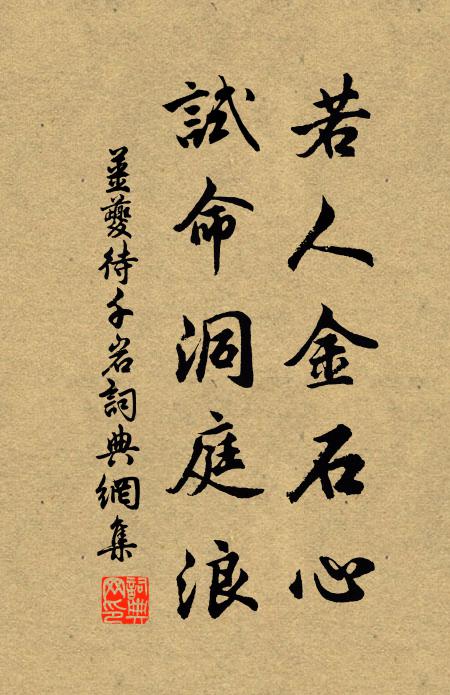 若人金石心
試命洞庭浪
姜夔待千岩詞典網集
詞典網印